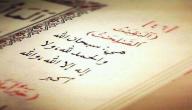 (الباقيات
الصالحات)
هي: سبحان الله
والحمد لله ولا
إله إلا الله والله
أكبر